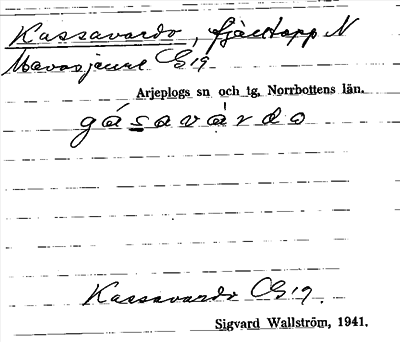 Kassavardo, fjälltopp N
Mavasjaure CS19
Arjeplogs sn och tg, Norrbottens län.
gásavàrdo
Kassavardo CS19.
Sigvard Wallström, 1941.